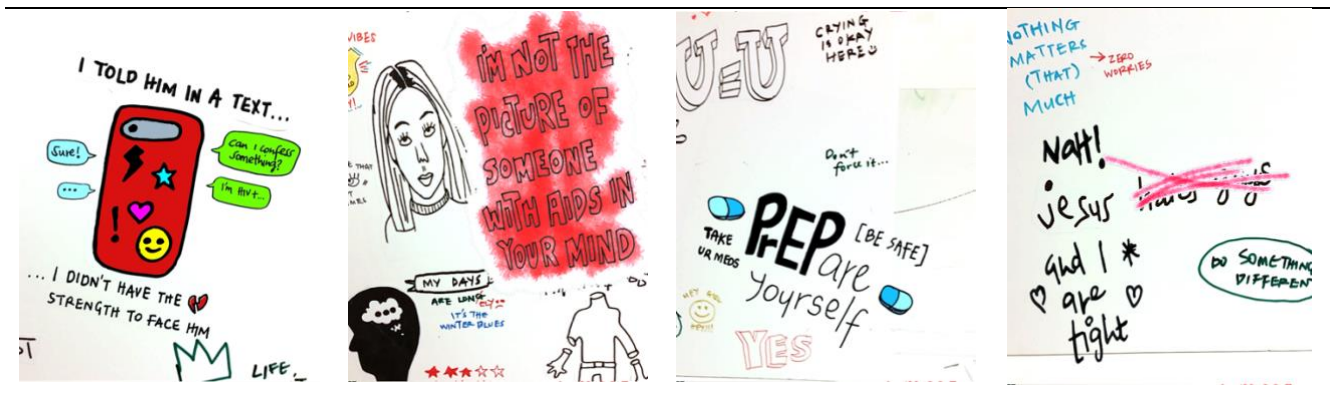 I TOLD HIM IN A TEXT...
Sure!
Can I confess
something?
...
I'm HIV+...
!
... I DIDN'T HAVE THE
STRENGTH TO FACE HIM
LIFE.
VIBES
I'M NOT THE
PICTURE OF
SOMEONE
WITH AIDS IN
YOUR MIND
THAT
MY DAYS
ARE LONG
IT'S THE
WINTER BLUES
U=U
CRYING
IS OKAY
HERE
Don't
force it...
TAKE
UR MEDS
PrEP
[BE SAFE]
are
yourself
YES
NOTHING
MATTERS
(THAT)
MUCH
→ ZERO
WORRIES
NAH!
jesus hates gays
and I *
are
tight
DO SOMETHING
DIFFERENT